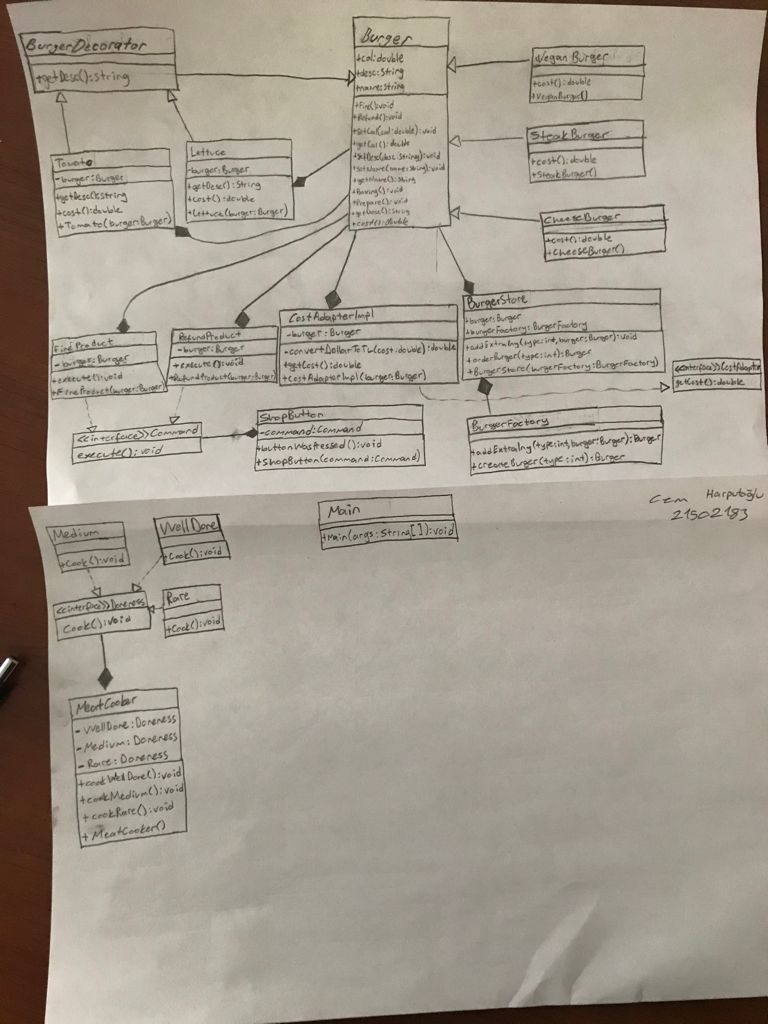 BurgerDecorator
+getDesc():String
Burger
+cal:double
+desc:String
+name:String
+Fire():void
+Refund():void
+setCal(cal:double):void
+getCal():double
+setDesc(desc:String):void
+setName(name:String):void
+getName():String
+Prepare():void
+getDesc():String
+cost():double
Vegan Burger
+cost():double
+VeganBurger()
SteakBurger
+cost():double
+SteakBurger()
CheeseBurger
+cost():double
+CheeseBurger()
Tomato
-burger:Burger
+getDesc():String
+cost():double
+Tomato(burger:Burger)
Lettuce
-burger:Burger
+getDesc():String
+cost():double
+Lettuce(burger:Burger)
-burger:Burger
+execute():void
RefundProduct
-burger:Burger
+execute():void
+RefundProduct(burger:Burger)
CostAdapterImpl
-burger:Burger
-convertDollarToTL(cost:double):double
+getCost():double
+CostAdapterImpl(burger:Burger)
BurgerStore
+burger:Burger
+burgerFactory:BurgerFactory
+addExtraIng(type:int,burger:Burger):void
+orderBurger(type:int):Burger
+BurgerStore(burgerFactory:BurgerFactory)
<<interface>>CostAdapter
getCost():double
<<interface>>Command
execute():void
ShopButton
-command:Command
+buttonWasPressed():void
+ShopButton(command:Command)
BurgerFactory
+addExtraIng(type:int,burger:Burger):Burger
+createBurger(type:int):Burger
Cem Harputoğlu
21502183
Medium
+Cook():void
WellDone
+Cook():void
Main
+Main(args:String[]):void
<<interface>>Doneness
Cook():void
Rare
+Cook():void
MeatCooker
-WellDone:Doneness
-Medium:Doneness
-Rare:Doneness
+cookWellDone():void
+cookMedium():void
+cookRare():void
+MeatCooker()